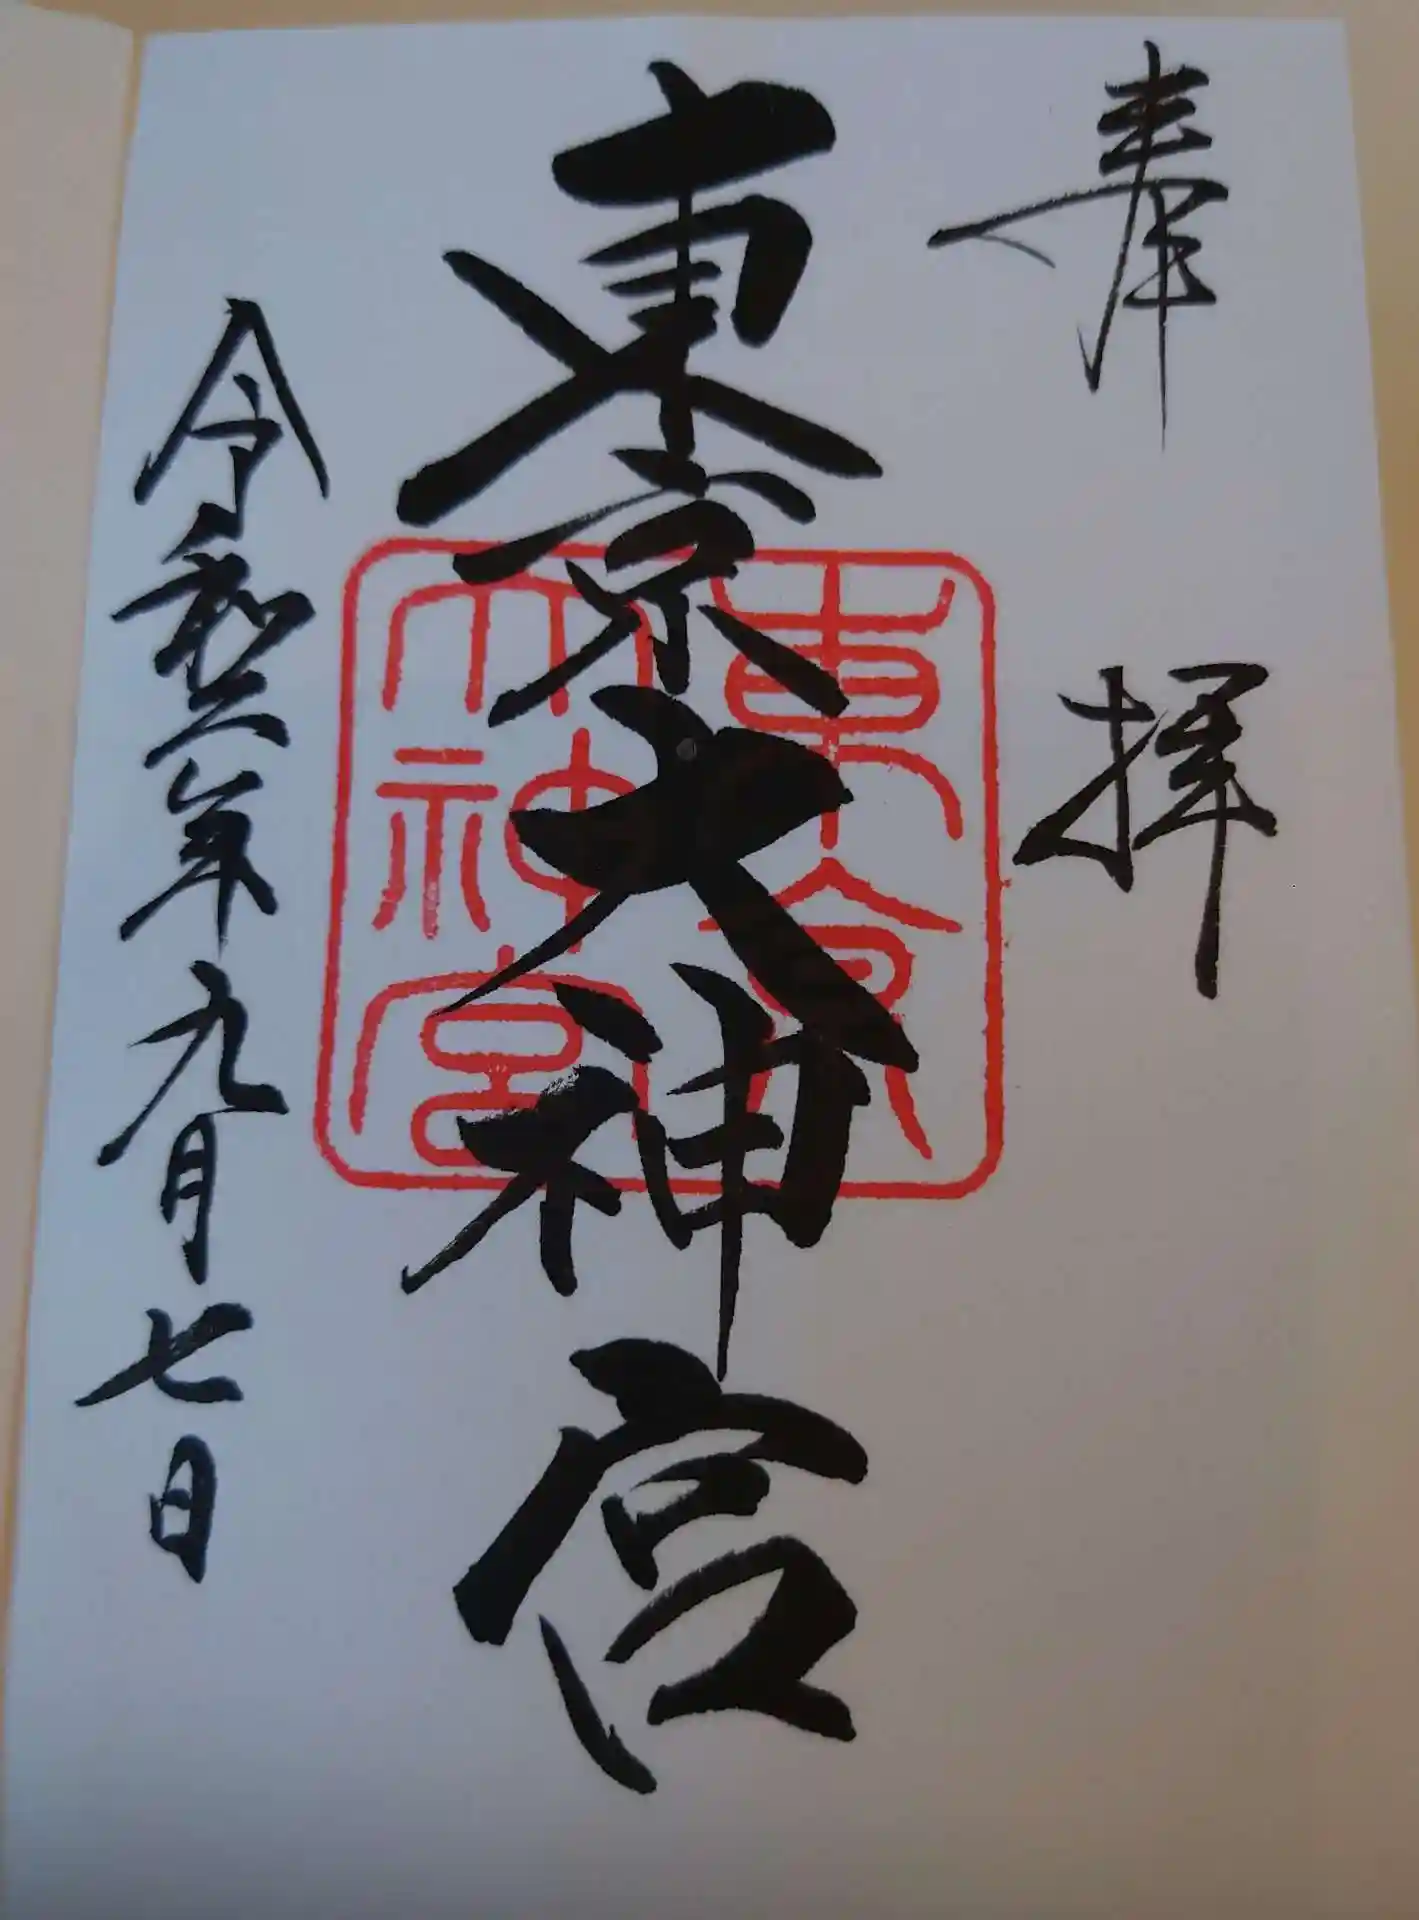 奉拝
東京大神宮
令和二年九月七日
東京
大神宮